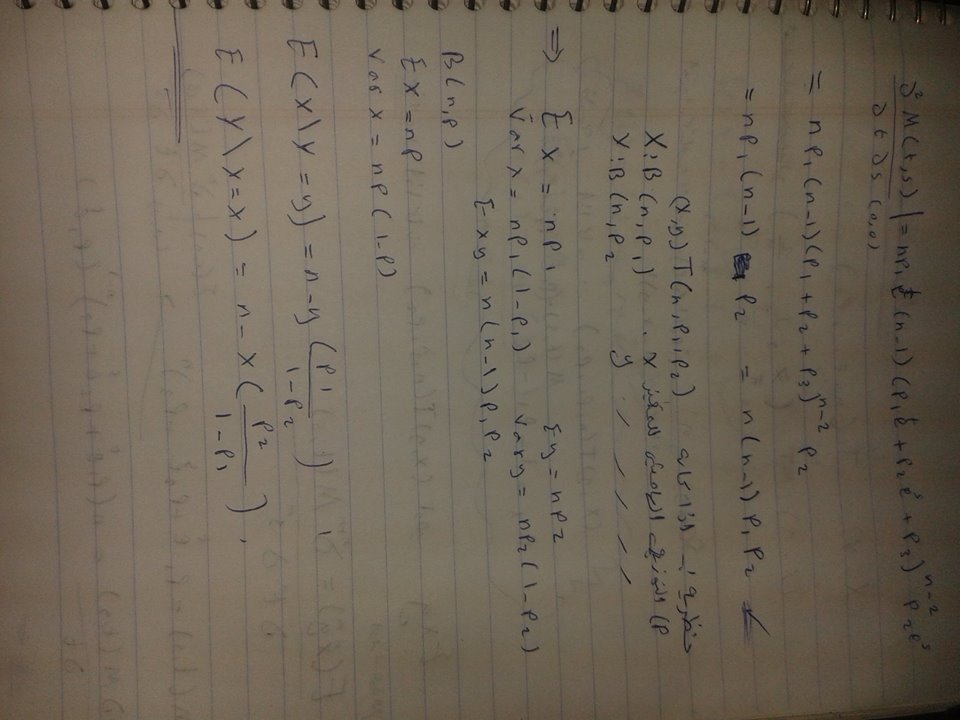 ∂²M(t,s)/∂t∂s |(0,0) = np₁eᵗ(n-1)(p₁eᵗ + p₂eˢ + p₃)ⁿ⁻² p₂eˢ
= np₁(n-1)(p₁+p₂+p₃)ⁿ⁻² p₂
= np₁(n-1) p₂ = n(n-1)p₁p₂
نظرية :- اذا كانه (x,y)T(n,p₁,p₂)
P) التوزيع الهامشي للمتغير x . X:B(n,p₁)
〃 〃 〃 〃 y Y:B(n,p₂
⇒ Ex = np₁ Ey = np₂
Var x = np₁(1-p₁) Var y = np₂(1-p₂)
Exy = n(n-1)p₁p₂
B(n,p)
Ex = np
Var x = np(1-p)
E(x\y=y) = n-y(p₁/1-p₂)
E(y\x=x) = n-x(p₂/1-p₁).